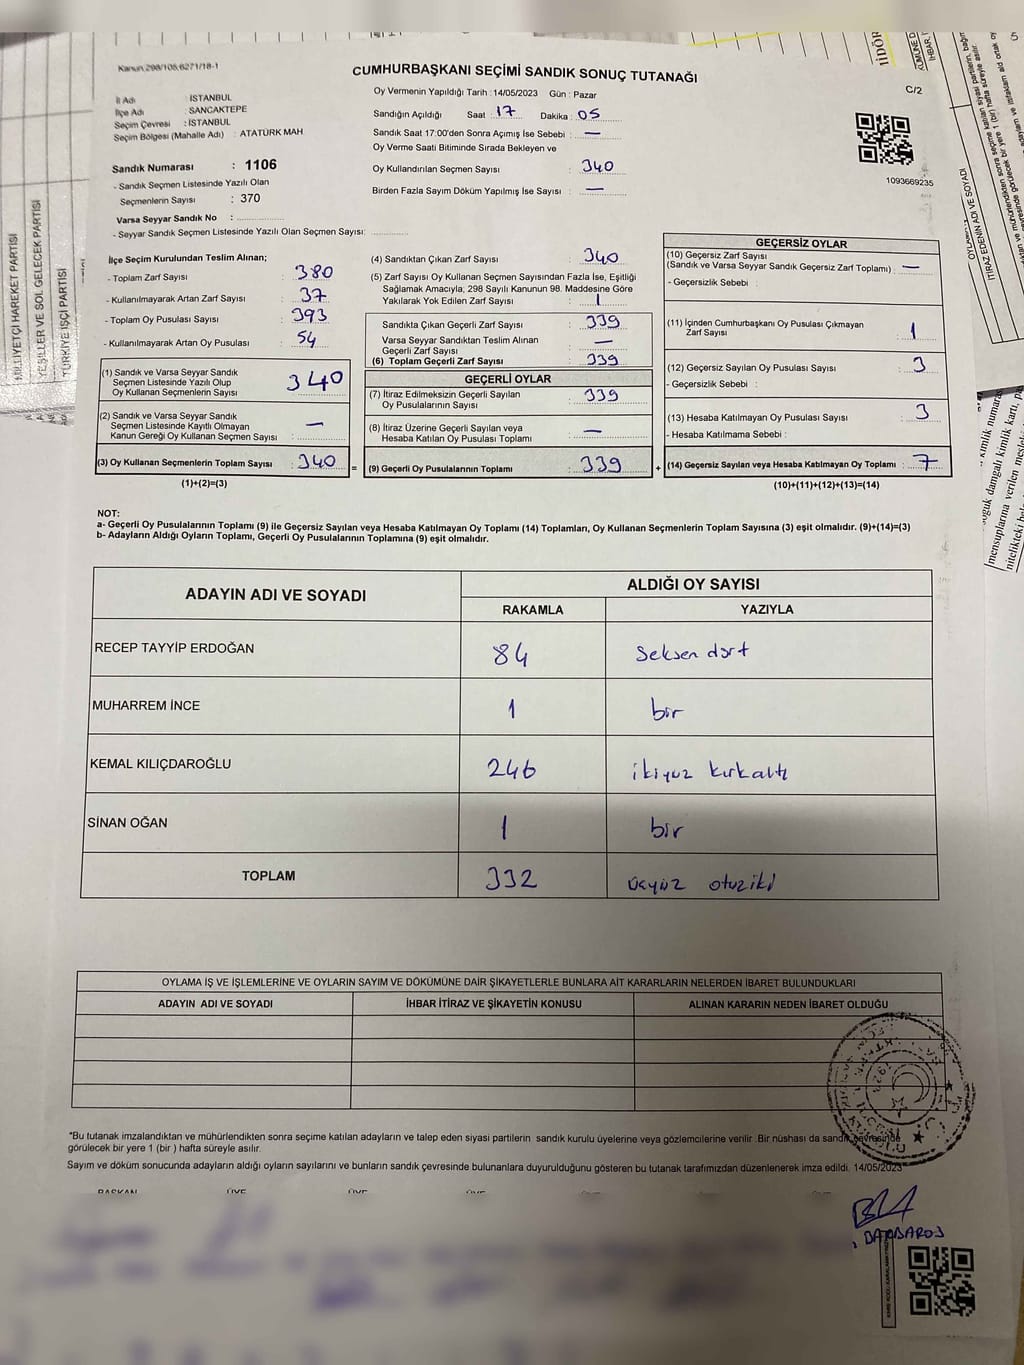 Kanun:298/105,6271/18-1
CUMHURBAŞKANI SEÇİMİ SANDIK SONUÇ TUTANAĞI
C/2
İl Adı : İSTANBUL
İlçe Adı : SANCAKTEPE
Seçim Çevresi : İSTANBUL
Seçim Bölgesi (Mahalle Adı) : ATATÜRK MAH
Sandık Numarası : 1106
- Sandık Seçmen Listesinde Yazılı Olan
Seçmenlerin Sayısı : 370
Varsa Seyyar Sandık No :
- Seyyar Sandık Seçmen Listesinde Yazılı Olan Seçmen Sayısı:
Oy Vermenin Yapıldığı Tarih : 14/05/2023 Gün : Pazar
Sandığın Açıldığı Saat : 17 Dakika : 05
Sandık Saat 17:00'den Sonra Açımış İse Sebebi : —
Oy Verme Saati Bitiminde Sırada Bekleyen ve
Oy Kullandırılan Seçmen Sayısı : 340
Birden Fazla Sayım Döküm Yapılmış İse Sayısı : —
1093669235
İlçe Seçim Kurulundan Teslim Alınan;
- Toplam Zarf Sayısı : 380
- Kullanılmayarak Artan Zarf Sayısı : 37
- Toplam Oy Pusulası Sayısı : 393
- Kullanılmayarak Artan Oy Pusulası : 54
(1) Sandık ve Varsa Seyyar Sandık
Seçmen Listesinde Yazılı Olup
Oy Kullanan Seçmenlerin Sayısı : 340
(2) Sandık ve Varsa Seyyar Sandık
Seçmen Listesinde Kayıtlı Olmayan
Kanun Gereği Oy Kullanan Seçmen Sayısı : —
(3) Oy Kullanan Seçmenlerin Toplam Sayısı : 340
(1)+(2)=(3)
=
(4) Sandıktan Çıkan Zarf Sayısı : 340
(5) Zarf Sayısı Oy Kullanan Seçmen Sayısından Fazla İse, Eşitliği
Sağlamak Amacıyla; 298 Sayılı Kanunun 98. Maddesine Göre
Yakılarak Yok Edilen Zarf Sayısı : 1
Sandıkta Çıkan Geçerli Zarf Sayısı : 339
Varsa Seyyar Sandıktan Teslim Alınan
Geçerli Zarf Sayısı : —
(6) Toplam Geçerli Zarf Sayısı : 339
GEÇERLİ OYLAR
(7) İtiraz Edilmeksizin Geçerli Sayılan
Oy Pusulalarının Sayısı : 339
(8) İtiraz Üzerine Geçerli Sayılan veya
Hesaba Katılan Oy Pusulası Toplamı : —
(9) Geçerli Oy Pusulalarının Toplamı : 339
+
GEÇERSİZ OYLAR
(10) Geçersiz Zarf Sayısı
(Sandık ve Varsa Seyyar Sandık Geçersiz Zarf Toplamı) : —
- Geçersizlik Sebebi :
(11) İçinden Cumhurbaşkanı Oy Pusulası Çıkmayan
Zarf Sayısı : 1
(12) Geçersiz Sayılan Oy Pusulası Sayısı : 3
- Geçersizlik Sebebi :
(13) Hesaba Katılmayan Oy Pusulası Sayısı : 3
- Hesaba Katılmama Sebebi :
(14) Geçersiz Sayılan veya Hesaba Katılmayan Oy Toplamı : 7
(10)+(11)+(12)+(13)=(14)
NOT:
a- Geçerli Oy Pusulalarının Toplamı (9) ile Geçersiz Sayılan veya Hesaba Katılmayan Oy Toplamı (14) Toplamları, Oy Kullanan Seçmenlerin Toplam Sayısına (3) eşit olmalıdır. (9)+(14)=(3)
b- Adayların Aldığı Oyların Toplamı, Geçerli Oy Pusulalarının Toplamına (9) eşit olmalıdır.
ADAYIN ADI VE SOYADI
ALDIĞI OY SAYISI
RAKAMLA YAZIYLA
RECEP TAYYİP ERDOĞAN 84 Seksen dört
MUHARREM İNCE 1 bir
KEMAL KILIÇDAROĞLU 246 ikiyüz kırkaltı
SİNAN OĞAN 1 bir
TOPLAM 332 üçyüz otuziki
OYLAMA İŞ VE İŞLEMLERİNE VE OYLARIN SAYIM VE DÖKÜMÜNE DAİR ŞİKAYETLERLE BUNLARA AİT KARARLARIN NELERDEN İBARET BULUNDUKLARI
ADAYIN ADI VE SOYADI İHBAR İTİRAZ VE ŞİKAYETİN KONUSU ALINAN KARARIN NEDEN İBARET OLDUĞU
*Bu tutanak imzalandıktan ve mühürlendikten sonra seçime katılan adayların ve talep eden siyasi partilerin sandık kurulu üyelerine veya gözlemcilerine verilir .Bir nüshası da sandık çevresinde
görülecek bir yere 1 (bir ) hafta süreyle asılır.
Sayım ve döküm sonucunda adayların aldığı oyların sayılarını ve bunların sandık çevresinde bulunanlara duyurulduğunu gösteren bu tutanak tarafımızdan düzenlenerek imza edildi. 14/05/2023
BAŞKAN ÜYE ÜYE ÜYE
BARBAROS
MİLLİYETÇİ HAREKET PARTİSİ
YEŞİLLER VE SOL GELECEK PARTİSİ
TÜRKİYE İŞÇİ PARTİSİ
İTİRAZ EDENİN ADI VE SOYADI